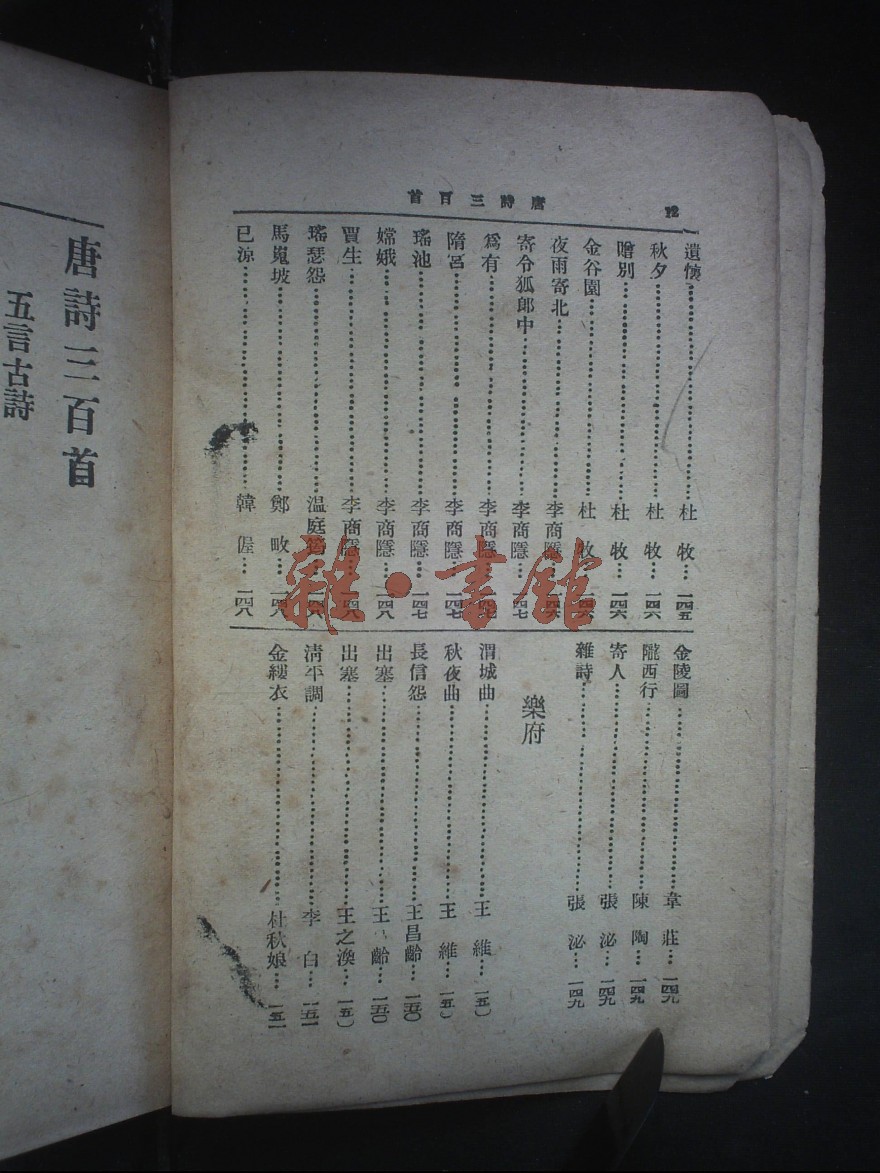 唐詩三百首
12
遺懷 杜牧 一四五
秋夕 杜牧 一四六
贈別 杜牧 一四六
金谷園 杜牧 一四六
夜雨寄北 李商隱 一四六
寄令狐郎中 李商隱 一四七
爲有 李商隱 一四七
隋宮 李商隱 一四七
瑤池 李商隱 一四七
嫦娥 李商隱 一四八
賈生 李商隱 一四八
瑤瑟怨 温庭筠 一四八
馬嵬坡 鄭畋 一四八
已涼 韓偓 一四八
金陵圖 韋莊 一四九
隴西行 陳陶 一四九
寄人 張泌 一四九
雜詩 張泌 一四九
樂府
渭城曲 王維 一五
秋夜曲 王維 一五
長信怨 王昌齡 一五〇
出塞 王 齡 一五〇
出塞 王之渙 一五
清平調 李白 一五一
金縷衣 杜秋娘 一五一
唐詩三百首
五言古詩
雜·書館